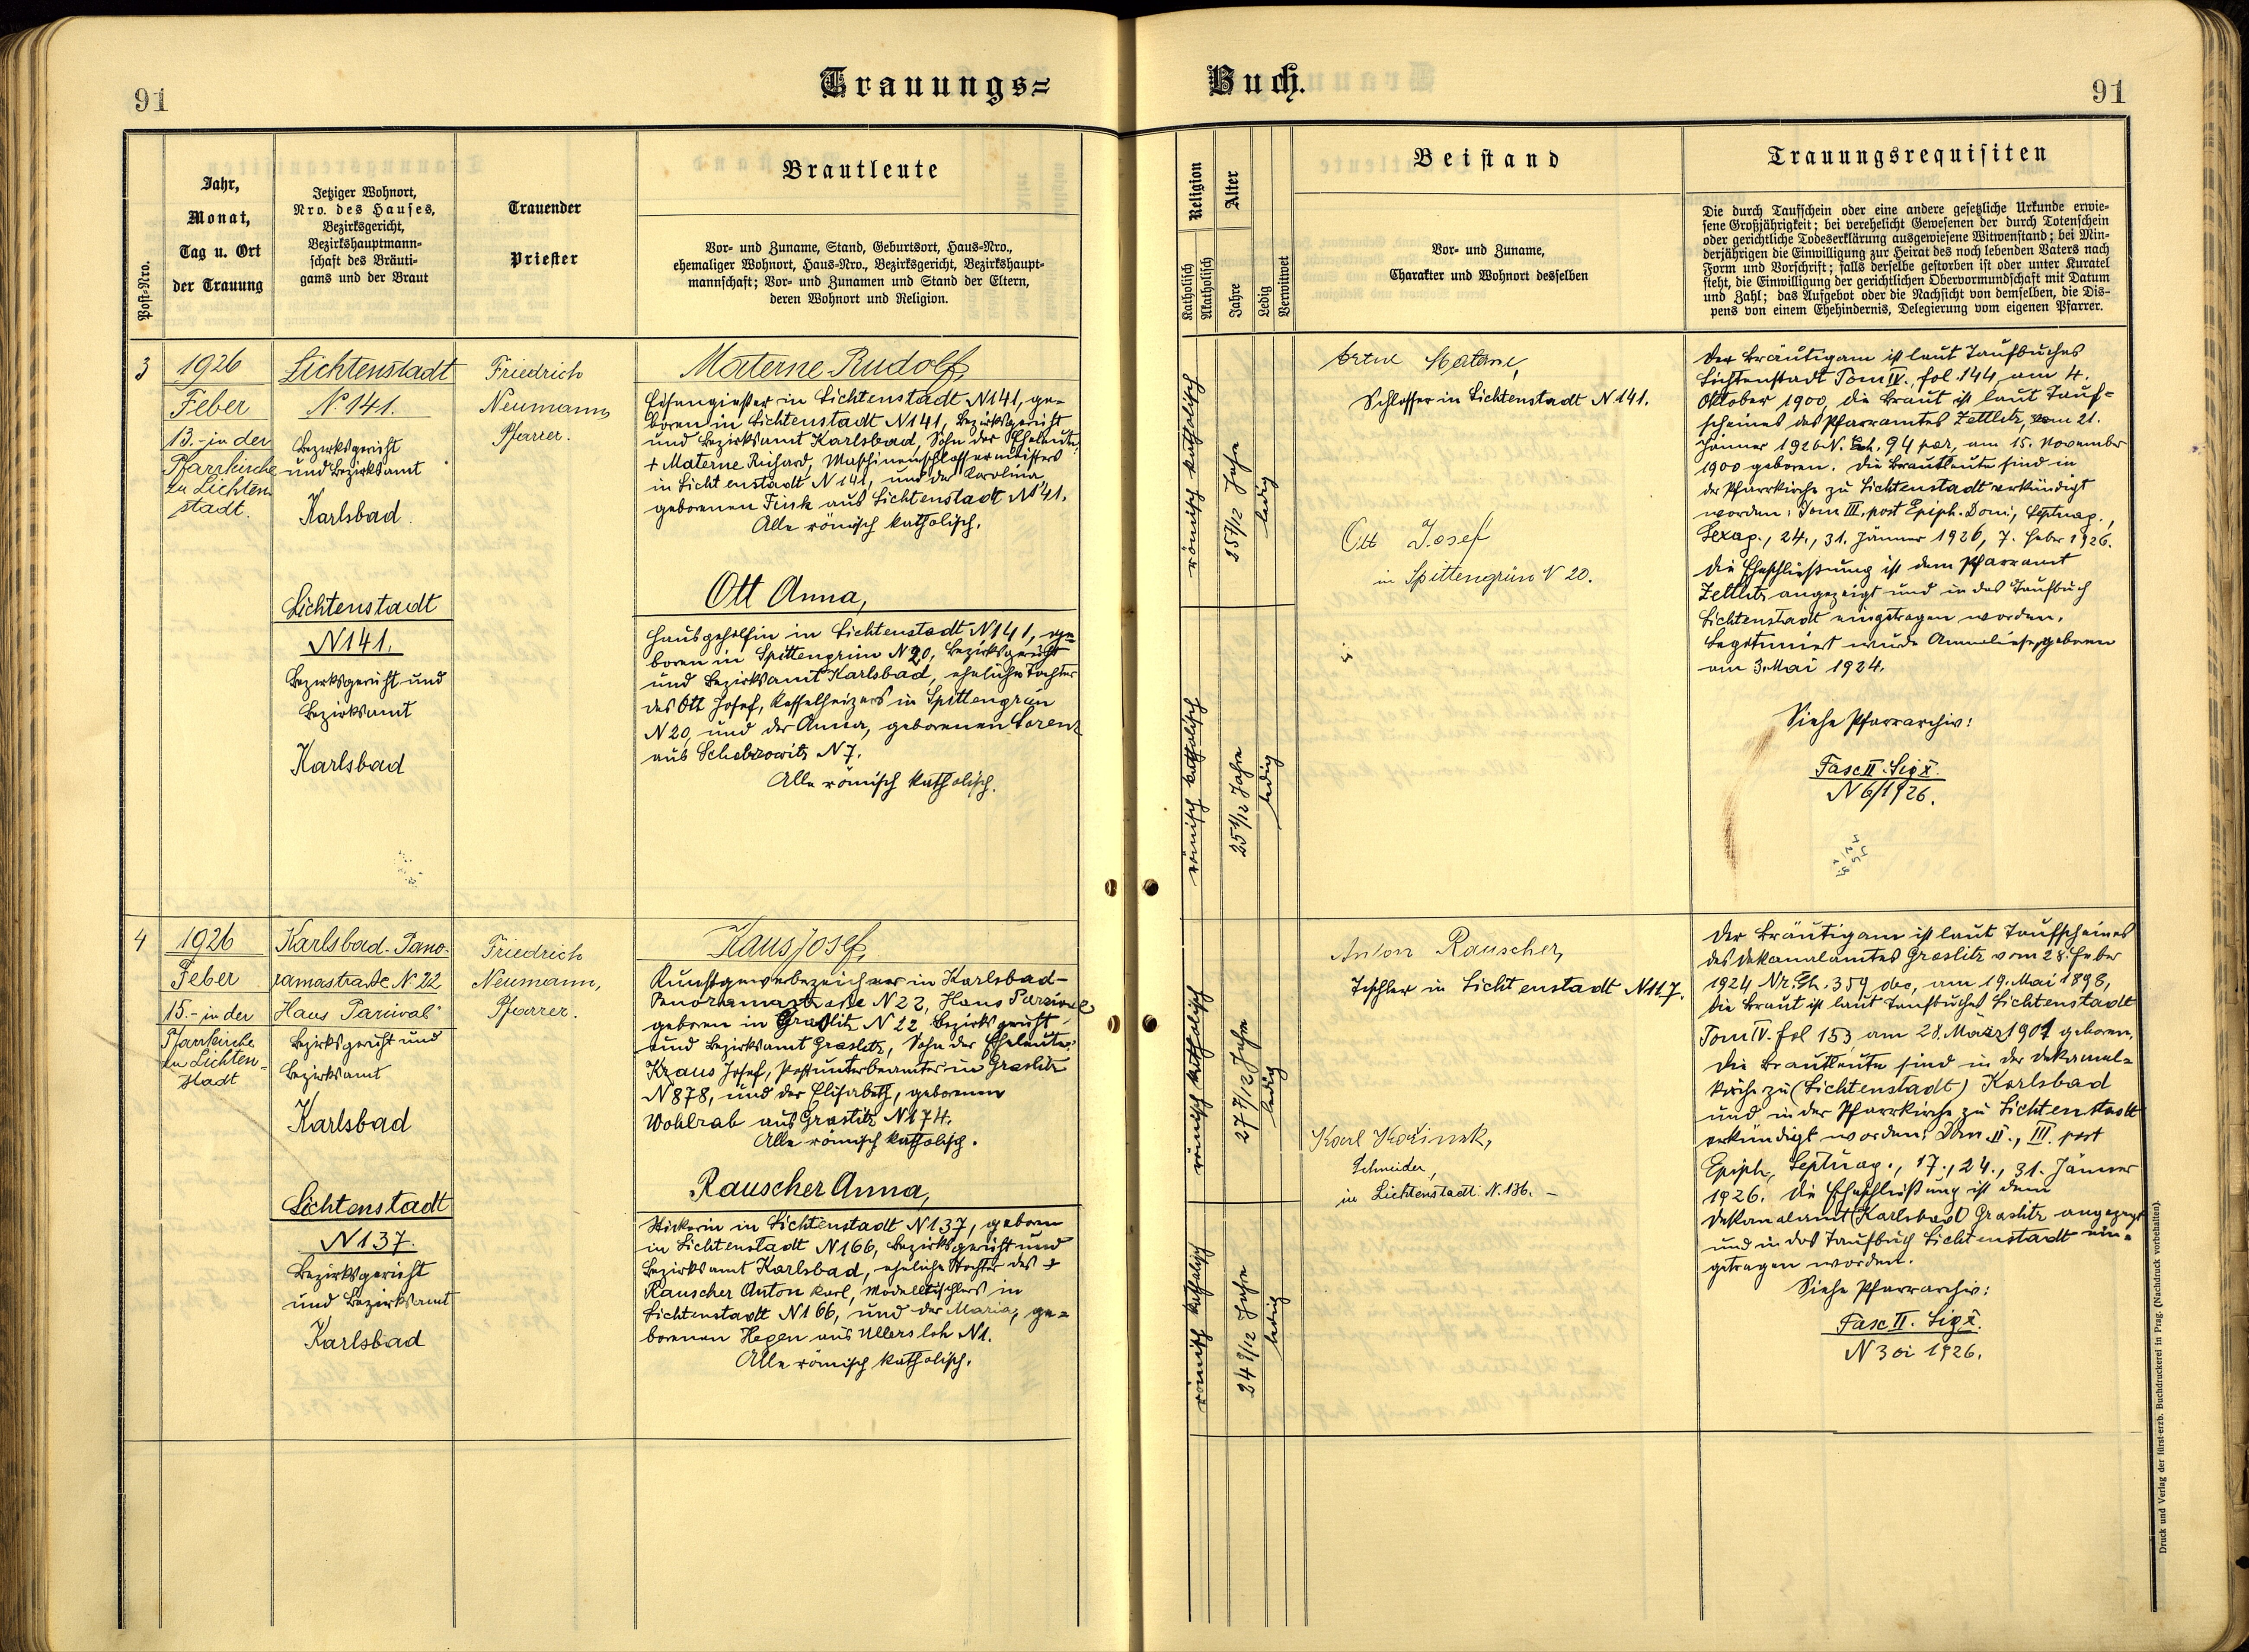 91
Trauungs=
Buch.
91
Post-Nro.
Jahr,
Monat,
Tag u. Ort
der Trauung
Jetziger Wohnort,
Nro. des Hauses,
Bezirksgericht,
Bezirkshauptmann-
schaft des Bräuti-
gams und der Braut
Trauender
Priester
Brautleute
Vor- und Zuname, Stand, Geburtsort, Haus-Nro.,
ehemaliger Wohnort, Haus-Nro., Bezirksgericht, Bezirkshaupt-
mannschaft; Vor- und Zunamen und Stand der Eltern,
deren Wohnort und Religion.
Religion
Katholisch
Akatholisch
Alter
Jahre
Ledig
Verwitwet
Beistand
Vor- und Zuname,
Charakter und Wohnort desselben
Trauungsrequisiten
Die durch Taufschein oder eine andere gesetzliche Urkunde erwie-
sene Großjährigkeit; bei verehelicht Gewesenen der durch Totenschein
oder gerichtliche Todeserklärung ausgewiesene Witwenstand; bei Min-
derjährigen die Einwilligung zur Heirat des noch lebenden Vaters nach
Form und Vorschrift; falls derselbe gestorben ist oder unter Kuratel
steht, die Einwilligung der gerichtlichen Obervormundschaft mit Datum
und Zahl; das Aufgebot oder die Nachsicht von demselben, die Dis-
pens von einem Ehehindernis, Delegierung vom eigenen Pfarrer.
3
1926
Feber
13.- in der
Pfarrkirche
zu Lichten-
stadt.
Lichtenstadt
N. 141.
Bezirksgericht
und Bezirksamt
Karlsbad.
Lichtenstadt
N 141.
Bezirksgericht und
Bezirksamt
Karlsbad
Friedrich
Neumann,
Pfarrer.
Materne Rudolf,
Eisengießer in Lichtenstadt N 141, ge-
boren in Lichtenstadt N 141, Bezirksgericht
und Bezirksamt Karlsbad, Sohn der Eheleute:
+ Materne Richard, Maschinenschlossermeisters
in Lichtenstadt N 141, und der Karolina,
geborenen Fink aus Lichtenstadt N 141.
Alle römisch katholisch.
Ott Anna,
Hausgehilfin in Lichtenstadt N 141, ge-
boren in Spittengrün N 20, Bezirksgericht
und Bezirksamt Karlsbad, eheliche Tochter
des Ott Josef, Kesselheizers in Spittengrün
N 20, und der Anna, geborenen Lorenz
aus Schobrowitz N 7.
Alle römisch katholisch.
römisch katholisch
25 4/12 Jahre
ledig
römisch katholisch
25 4/12 Jahre
ledig
Materne,
Schlosser in Lichtenstadt N 141.
Ott Josef
in Spittengrün N 20.
Der Bräutigam ist laut Taufbuches
Lichtenstadt Tom IV., fol. 144, am 4.
Oktober 1900, die Braut ist laut Tauf-
scheines des Pfarramtes Zettlitz, vom 21.
Jänner 1926 N. Exh. 94 par, am 15. November
1900 geboren. Die Brautleute sind in
der Pfarrkirche zu Lichtenstadt verkündigt
worden: Dom III. post Epiph. Dom., Septuag.,
Sexag., 24., 31. Jänner 1926, 7. Feber 1926.
Die Eheschließung ist dem Pfarramt
Zettlitz angezeigt und in das Taufbuch
Lichtenstadt eingetragen worden.
Legitimiert wurde Anneliese, geboren
am 3. Mai 1924.
Siehe Pfarrarchiv:
Fasc II. Sig X.
N 6/1926.
4
1926
Feber
15.- in der
Pfarrkirche
zu Lichten-
stadt
Karlsbad-Pano-
ramastraße N. 22
Haus "Parcival"
Bezirksgericht und
Bezirksamt
Karlsbad
Lichtenstadt
N 137.
Bezirksgericht
und Bezirksamt
Karlsbad
Friedrich
Neumann,
Pfarrer.
Kaus Josef,
Kunstgewerbezeichner in Karlsbad-
Panoramastraße N 22, Haus Parzival
geboren in Graslitz N 22, Bezirksgericht
und Bezirksamt Graslitz, Sohn der Eheleute:
Kraus Josef, Postunterbeamter in Graslitz
N 878, und der Elisabeth, geborenen
Wohlrab aus Graslitz N 174.
Alle römisch katholisch.
Rauscher Anna,
Stickerin in Lichtenstadt N 137, geboren
in Lichtenstadt N 166, Bezirksgericht und
Bezirksamt Karlsbad, eheliche Tochter des +
Rauscher Anton Karl, Modelltischlers in
Lichtenstadt N 166, und der Maria, ge-
borenen Hegen aus Ullersloh N 1.
Alle römisch katholisch.
römisch katholisch
27 7/12 Jahre
ledig
römisch katholisch
24 9/12 Jahre
ledig
Anton Rauscher,
Tischler in Lichtenstadt N 117.
Karl Kořinek,
Schneider,
in Lichtenstadt N. 136. -
Der Bräutigam ist laut Taufscheines
des Dekanalamtes Graslitz vom 28. Feber
1924 Nr. Eh. 359 dto, am 19. Mai 1898,
die Braut ist laut Taufbuches Lichtenstadt
Tom IV. fol 153 am 28. März 1901 geboren.
Die Brautleute sind in der Dekanal-
kirche zu (Lichtenstadt) Karlsbad
und in der Pfarrkirche zu Lichtenstadt
verkündigt worden: Dom. II., III. post
Epiph., Septuag., 17., 24., 31. Jänner
1926. Die Eheschließung ist dem
Dekanalamt (Karlsbad) Graslitz angezeigt
und in das Taufbuch Lichtenstadt ein-
getragen worden.
Siehe Pfarrarchiv:
Fasc II. Sig X.
N 3 oi 1926.
Druck und Verlag der fürst-erzb. Buchdruckerei in Prag. (Nachdruck vorbehalten)